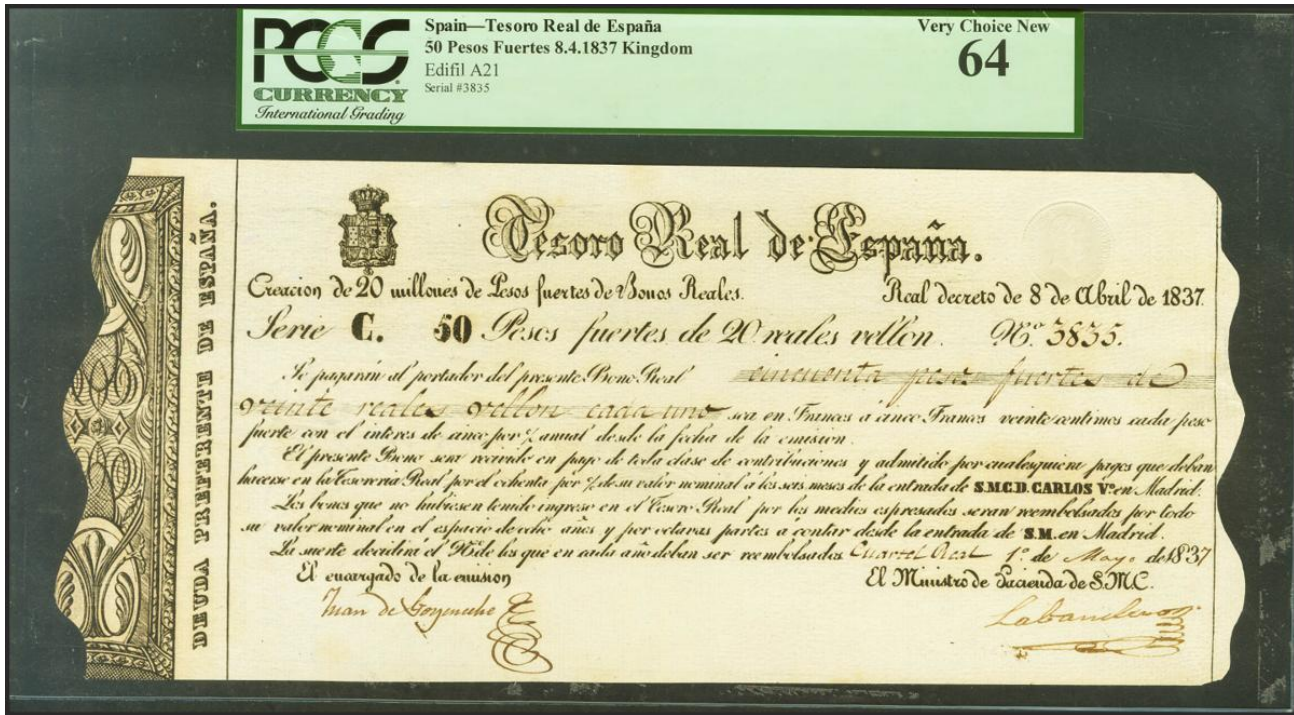 PCGS
CURRENCY
International Grading
Spain—Tesoro Real de España
50 Pesos Fuertes 8.4.1837 Kingdom
Edifil A21
Serial #3835
Very Choice New
64
DEUDA PREFERENTE DE ESPAÑA.
Tesoro Real de España.
Creacion de 20 millones de Pesos fuertes de Bonos Reales. Real decreto de 8 de Abril de 1837.
Serie C. 50 Pesos fuertes de 20 reales vellon. Nº. 3835.
Se pagarán al portador del presente Bono Real cincuenta pesos fuertes de
veinte reales vellon cada uno sea en Francos á cinco Francos veinte centimos cada peso
fuerte con el interes de cinco por % anual desde la fecha de la emision.
El presente Bono sera recivido en pago de toda clase de contribuciones y admitido por cualesquiera pagos que deban
hacerse en la Tesoreria Real por el ochenta por % de su valor nominal á los seis meses de la entrada de S.M.C.D. CARLOS Vº en Madrid.
Los bonos que no hubiesen tenido ingreso en el Tesoro Real por los medios espresados seran reembolsados por todo
su valor nominal en el espacio de ocho años y por octavas partes á contar desde la entrada de S.M. en Madrid.
La suerte decidirá el Nº de los que en cada año deban ser reembolsados Cuartel Real 1º. de Mayo de 1837
El encargado de la emision
El Ministro de Hacienda de S.M.C.
Juan de
Labandero